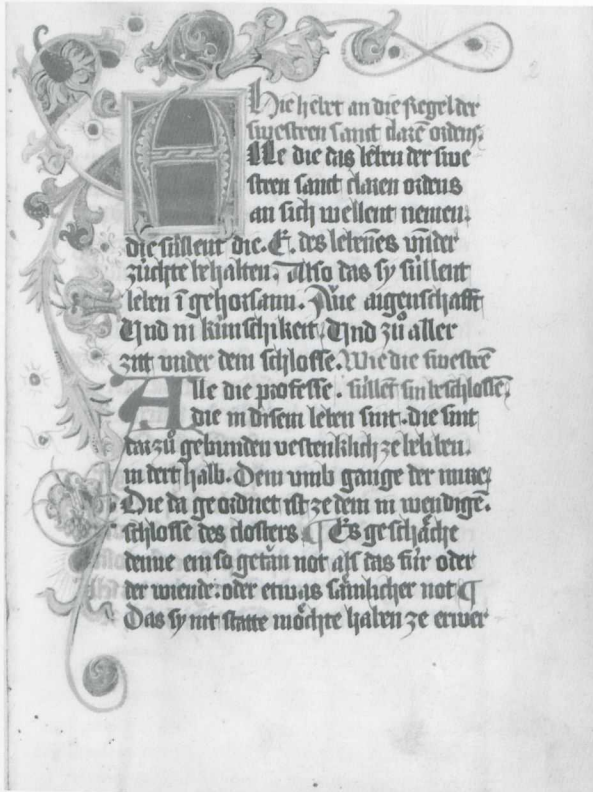 Hie hebt an die Regel der
swestren sant claren ordens.
Alle die das leben der swe
stren sant claren ordens
an sich wellent nemen.
die süllent die. E. des lebenes vnder
züchte behalten. Also das sy süllent
leben ī gehorsam. Ane aigenschafft
Und in künschikeit. Und zů aller
zitt vnder dem schlosse. Wie die swestrē
Alle die professe. süllēt sin beschlossē.
die in disem leben sint. die sint
darzů gebunden vestenklich ze beliben.
indert halb. Dem vmb gange der mure
Die da ge ordnet ist ze dem in wendigē.
schlosse des closters ¶ Es geschäche
denne ein so getän not als das für oder
der viende. oder etwas sämlicher not ¶
Das sy nit statte möchte haben ze erwer